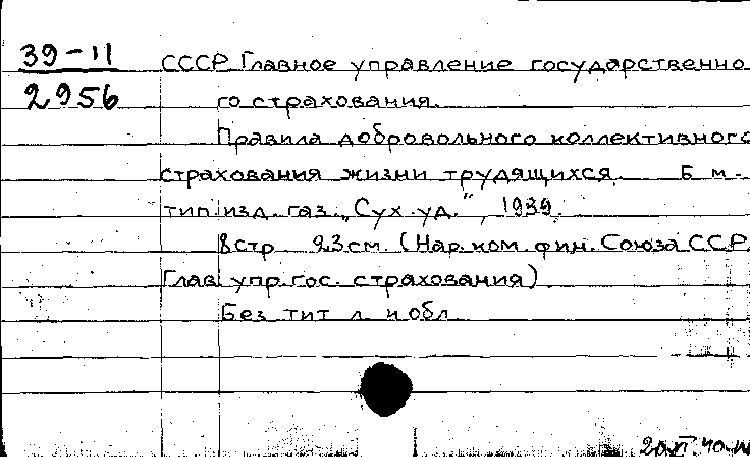 39-11
2956
СССР Главное управление государственно
го страхования.
Правила добровольного коллективного
страхования жизни трудящихся. Б м.
тип.изд. газ. „Сух. уд.", 1939.
8 стр 23 см. (Нар. ком. фин. Союза ССР.
Глав упр. гос. страхования)
Без тит л. и обл.